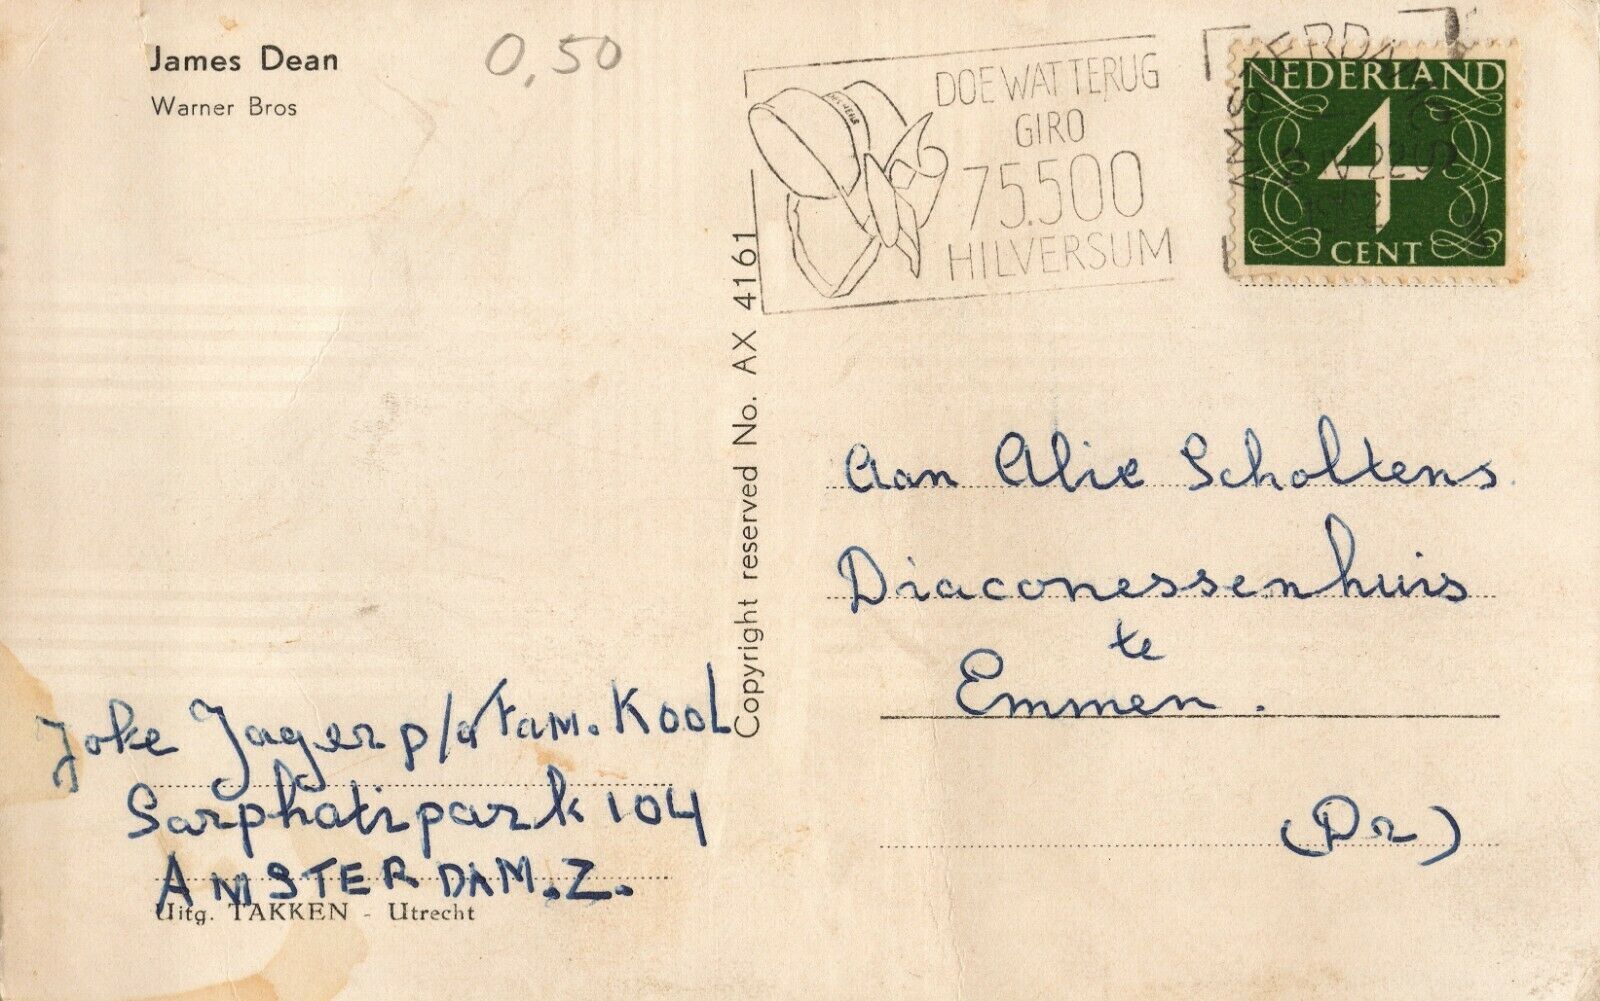 James Dean
Warner Bros
0,50
DOE WAT TERUG
GIRO
75.500
HILVERSUM
AMSTERDAM
NEDERLAND
4
CENT
Copyright reserved No. AX 4161
Aan Alie Scholtens.
Diaconessenhuis
te
Emmen.
(Dr)
Joke Jager p/a Fam. Kool
Sarphatipark 104
AMSTERDAM. Z.
Uitg. TAKKEN - Utrecht